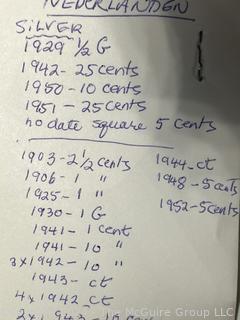 NEDERLANDEN
SILVER
1929 1/2 G
1942 - 25 cents
1980 - 10 cents
1951 - 25 cents
no date square 5 cents
1903 - 2 1/2 cents
1906 - 1 "
1925 - 1 "
1930 - 1 G
1941 - 1 cent
1941 - 10 "
3x1942 - 10 "
1943 - ct
4x1942 ct
2x1943 - 10
1944 - ct
1948 - 5 cents
1952 - 5 cents
© McGuire Group LLC